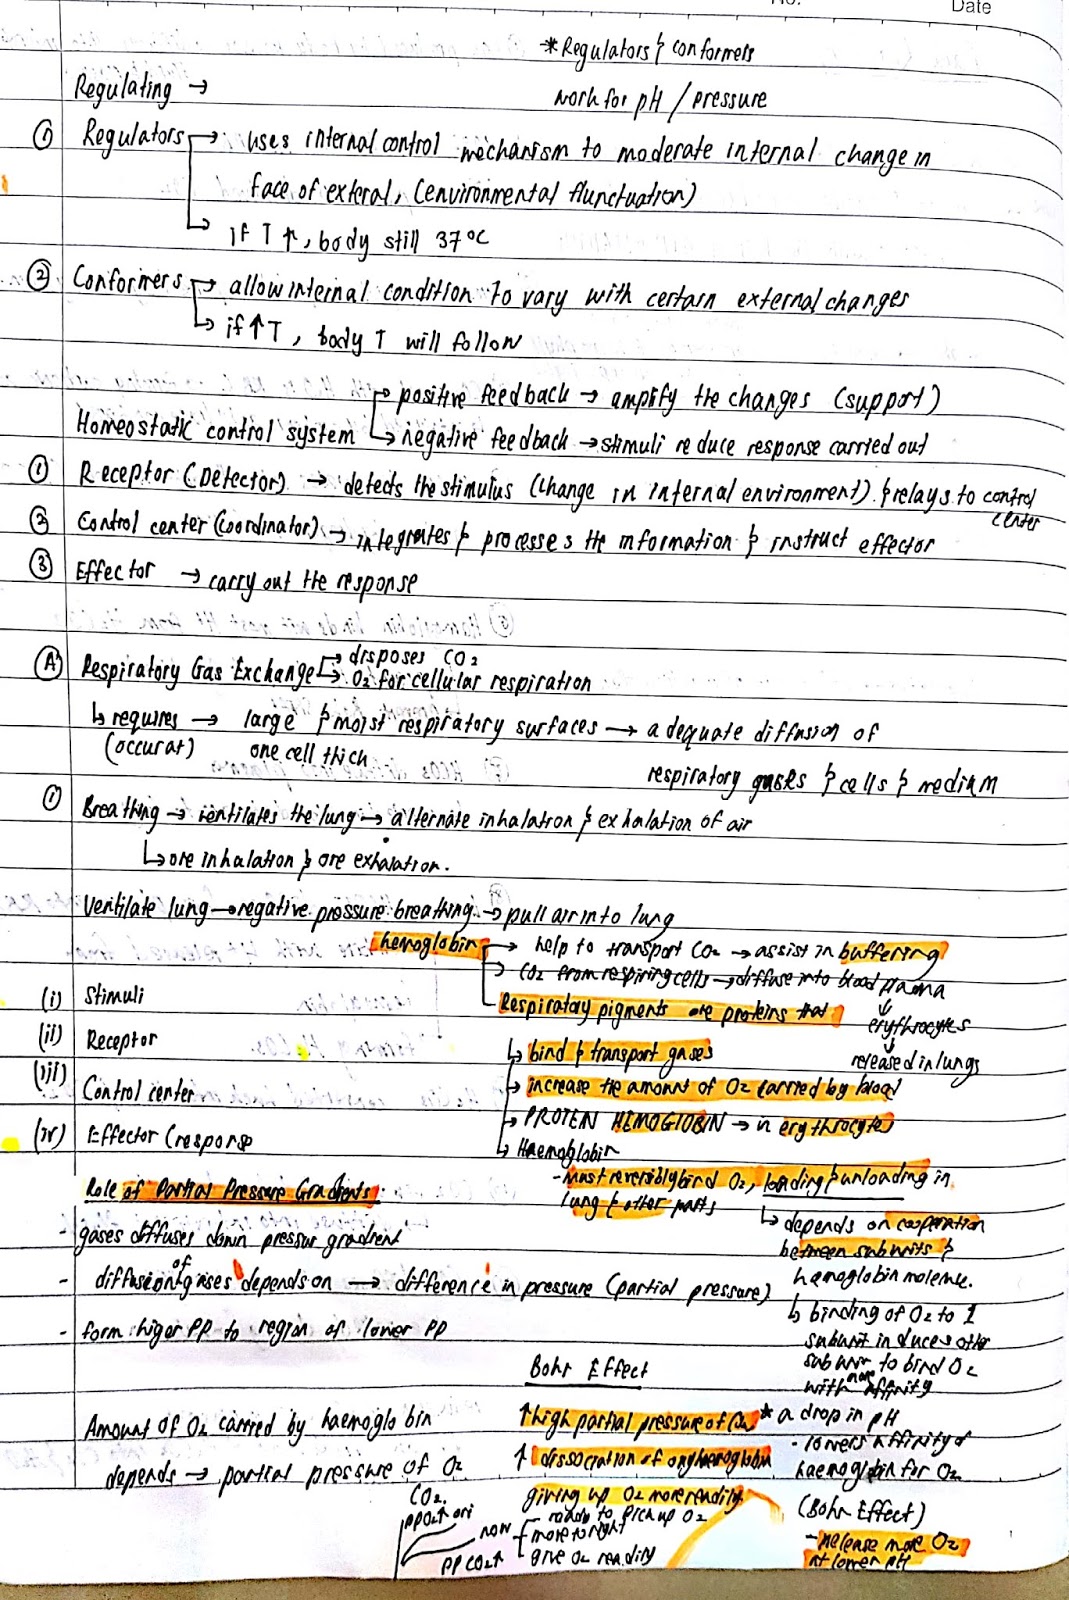 Date
*Regulators & conformers
Regulating →
work for pH / pressure
① Regulators → uses internal control mechanism to moderate internal change in
face of exteral, (environmental flunctuation)
↳ if T ↑, body still 37°C
② Conformers → allow internal condition to vary with certain external changes
↳ if ↑ T, body T will follow
→ positive feedback → amplify the changes (support)
Homeostatic control system ↳ negative feedback → stimuli reduce response carried out
① Receptor (Detector) → detects the stimulus (change in internal environment) & relays to control
center
② Control center (coordinator) → integrates & processes the information & instruct effector
③ Effector → carry out the response
Ⓐ Respiratory Gas Exchange → disposes CO2
↳ O2 for cellular respiration
↳ requires → large & moist respiratory surfaces → adequate diffusion of
(occur at) one cell thick
respiratory gases & cells & medium
① Breathing → ventilates the lung → alternate inhalation & exhalation of air
↳ one inhalation & one exhalation.
Ventilate lung → negative pressure breathing → pull air into lung
hemoglobin → help to transport CO2 → assist in buffering
→ CO2 from respiring cells → diffuse into blood plasma
(i) Stimuli
Respiratory pigments are proteins that
↓
erythrocytes
(ii) Receptor
↳ bind & transport gases
↓
released in lungs
(iii) Control center
→ increase the amount of O2 carried by blood
→ PROTEN HEMOGLOBIN → in erythrocytes
(iv) Effector (response
↳ Haemoglobin
- Must reversibly bind O2, loading & unloading in
lung & other parts
Role of Partial Pressure Gradients:
↳ depends on cooperation
between subunits &
haemoglobin molecule.
- gases diffuses down pressur gradient
- diffusion of gases depends on → difference in pressure (partial pressure)
↳ binding of O2 to 1
subunit induces other
subunit to bind O2
with more affinity
- form higer PP to region of lower PP
Bohr Effect
Amount of O2 carried by haemoglobin
depends → partial pressure of O2
↑ high partial pressure of CO2
↑ dissociation of oxyhaemoglobin
giving up O2 more readily
* a drop in pH
- lowers affinity of
haemoglobin for O2
(Bohr Effect)
- release more O2
at lower pH
CO2.
PPO2↑ ori
now
PPCO2↑
- ready to pick up O2
- more to right
- give O2 readily